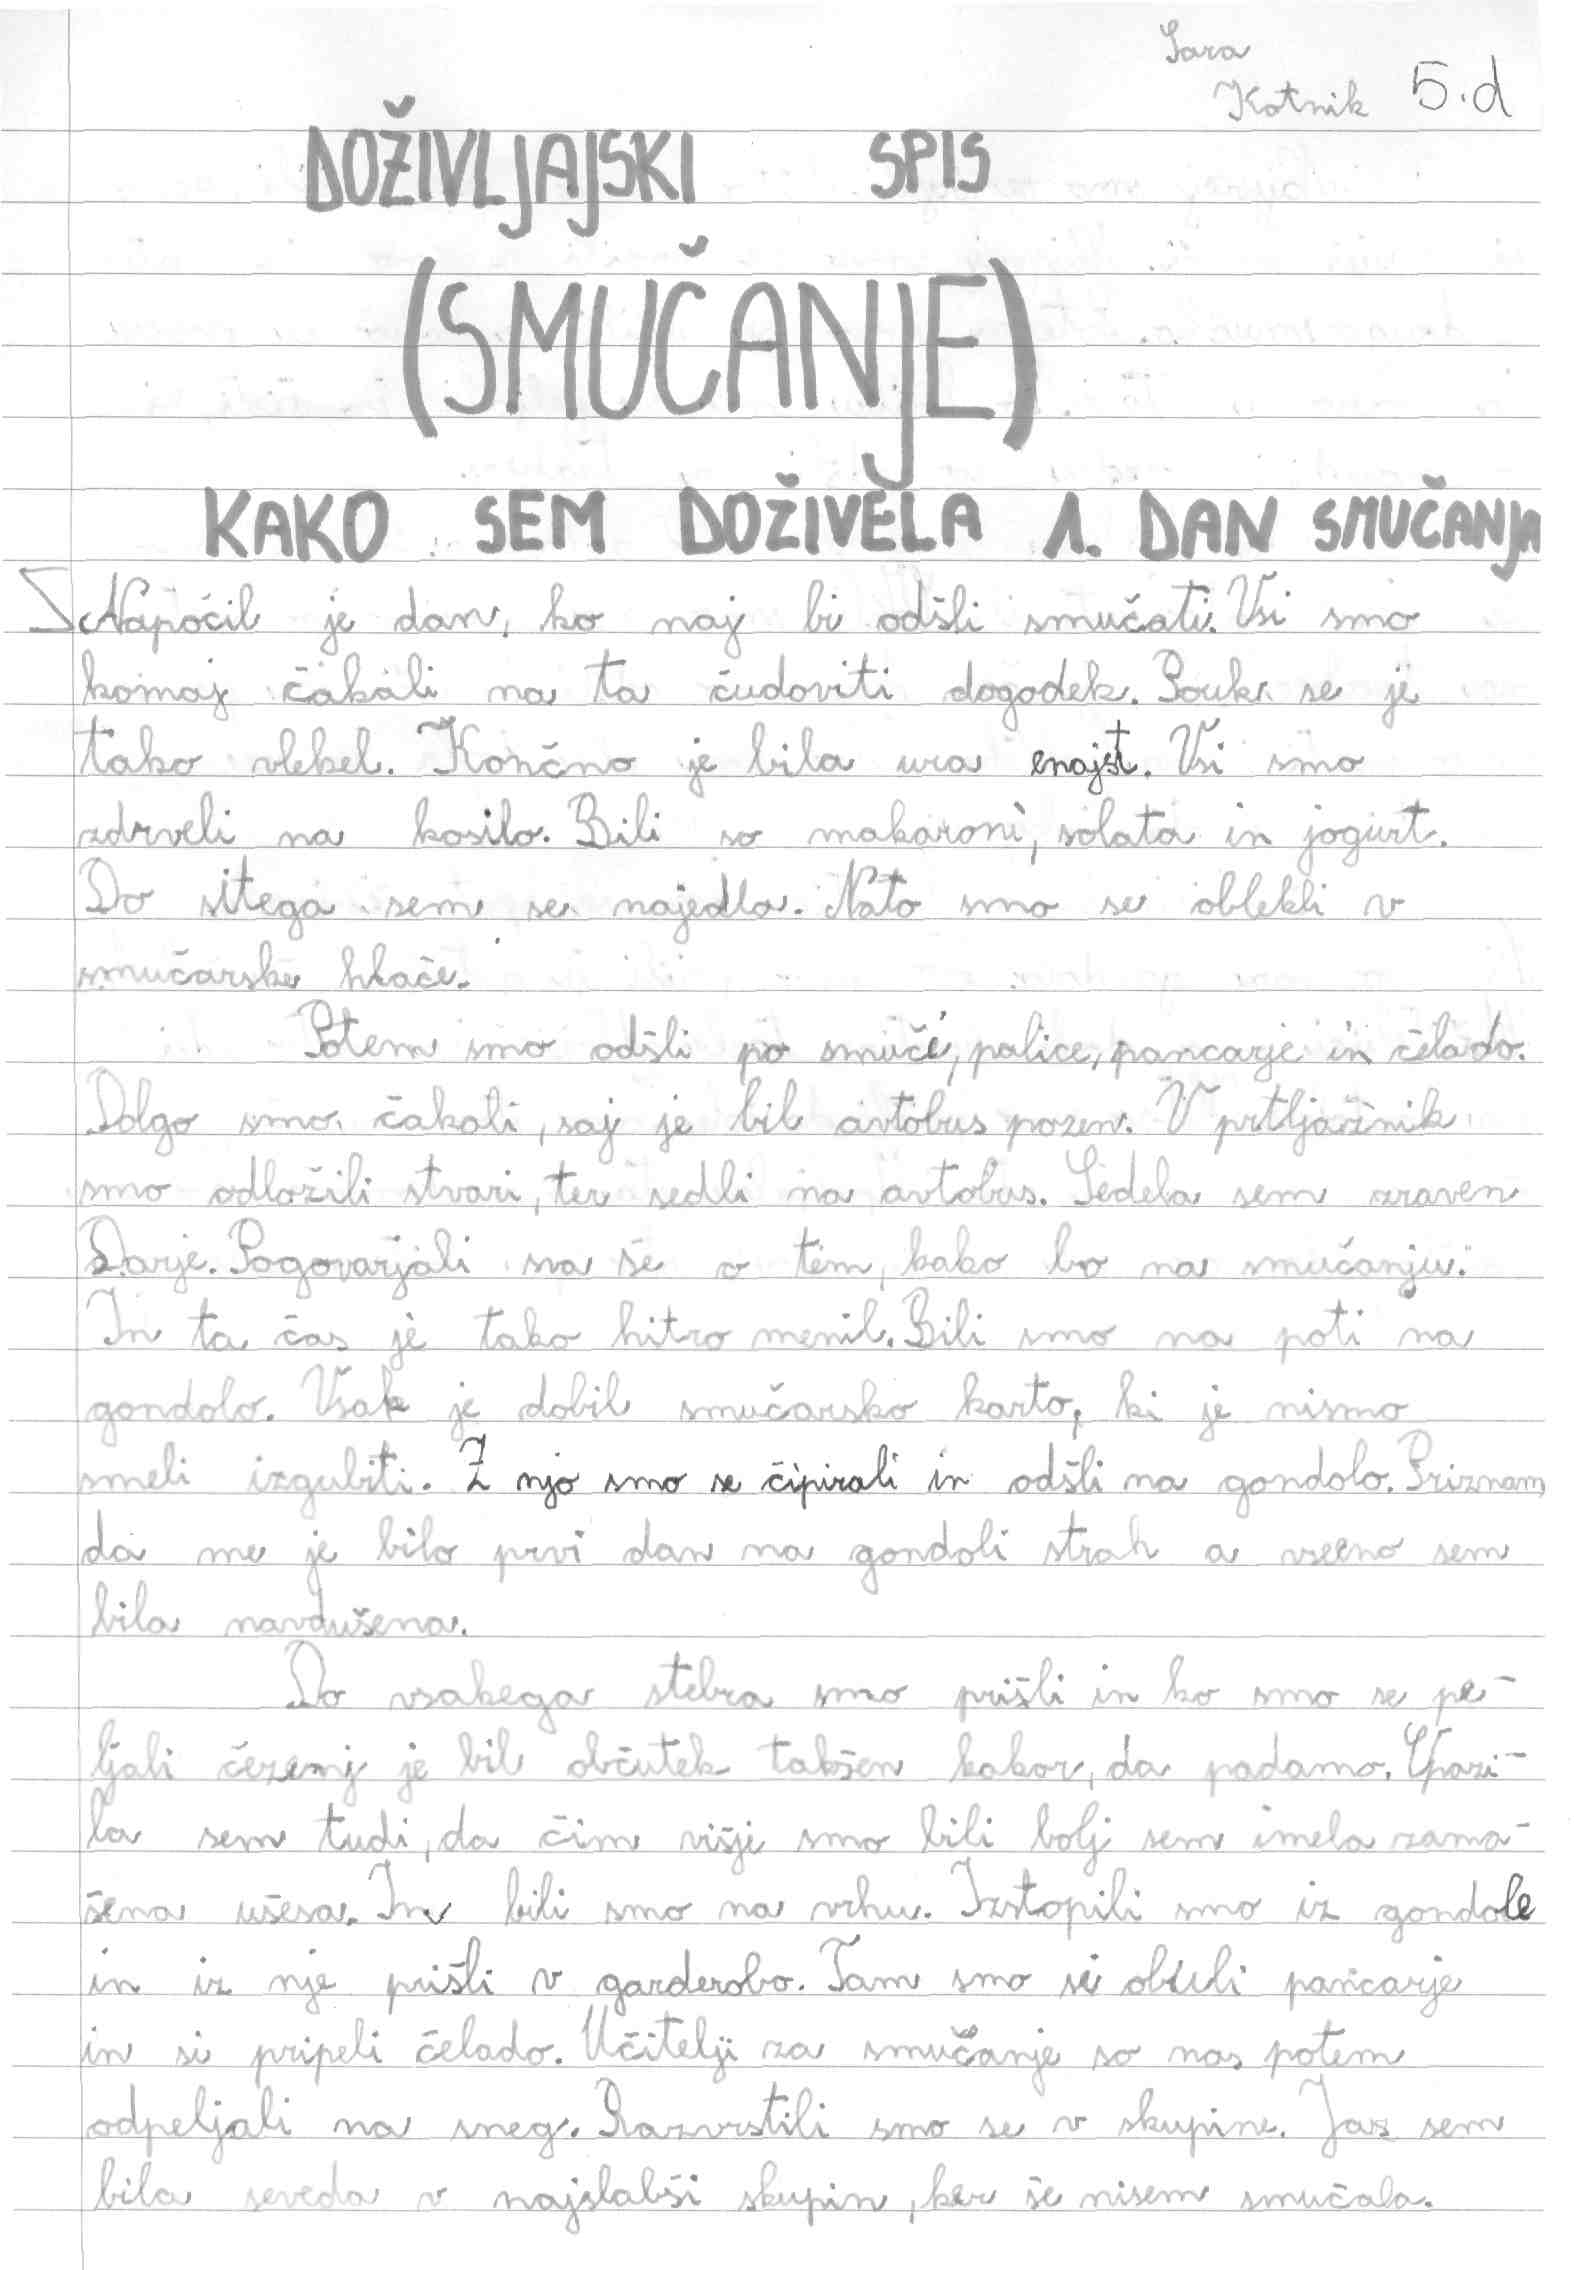 Sara
Kotnik 5.d
DOŽIVLJAJSKI SPIS
(SMUČANJE)
KAKO SEM DOŽIVELA 1. DAN SMUČANJA
Napočil je dan, ko naj bi odšli smučati. Vsi smo
komaj čakali na ta čudoviti dogodek. Pouk se je
tako vlekel. Končno je bila ura enajst. Vsi smo
zdrveli na kosilo. Bili so makaroni, solata in jogurt.
Do sitega sem se najedla. Nato smo se oblekli v
smučarske hlače.
Potem smo odšli po smuči, palice, pancarje in čelado.
Dolgo smo čakali, saj je bil avtobus pozen. V prtljažnik
smo odložili stvari, ter sedli na avtobus. Sedela sem zraven
Darje. Pogovarjali sva se o tem, kako bo na smučanju.
In ta čas je tako hitro menil. Bili smo na poti na
gondolo. Vsak je dobil smučarsko karto, ki je nismo
smeli izgubiti. Z njo smo se čipirali in odšli na gondolo. Priznam,
da me je bilo prvi dan na gondoli strah a vseeno sem
bila navdušena.
Do vsakega stebra smo prišli in ko smo se pe-
ljali čezenj je bil občutek takšen kakor, da padamo. Opazi-
la sem tudi, da čim višje smo bili bolj sem imela zama-
šena ušesa. In bili smo na vrhu. Izstopili smo iz gondole
in iz nje prišli v garderobo. Tam smo si obuli pancarje
in si pripeli čelado. Učitelji za smučanje so nas potem
odpeljali na sneg. Razvrstili smo se v skupine. Jaz sem
bila seveda v najslabši skupin, ker še nisem smučala.